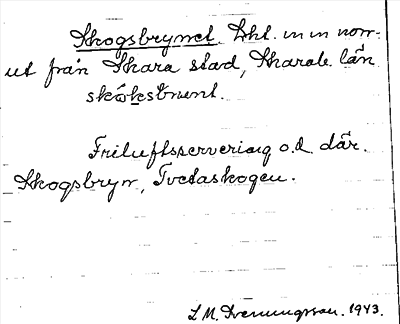 Skogsbrynet. Lht. in in norr-
ut från Skara stad, Skarab. län
skɷ̀ksbrŭnt.
Friluftsservering o.d. där.
Skogsbryn, Tvetaskogen.
L M. Svenungsson. 1943.